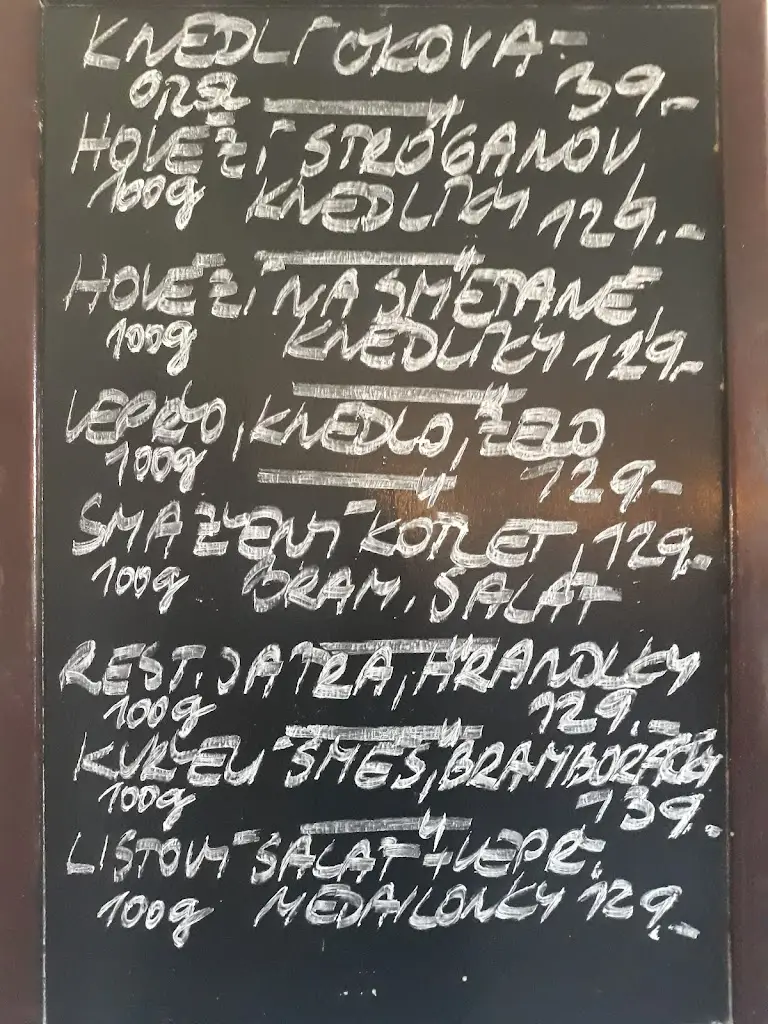 KNEDLÍČKOVÁ
0,25l 39.-
HOVĚZÍ STROGANOV,
100g KNEDLÍKY 129.-
HOVĚZÍ NA SMETANĚ,
100g KNEDLÍKY 129.-
VEPŘO, KNEDLO, ZELO
100g 129-
SMAŽENÝ KOTLET, 129.-
100g BRAM. SALÁT
REST. JATRA, HRANOLKY
100g 129.-
KUŘECÍ SMĚS, BRAMBORÁČKY
100g 139.
LISTOVÝ SALÁT + VEPŘ.
100g MEDAILONKY 129.-